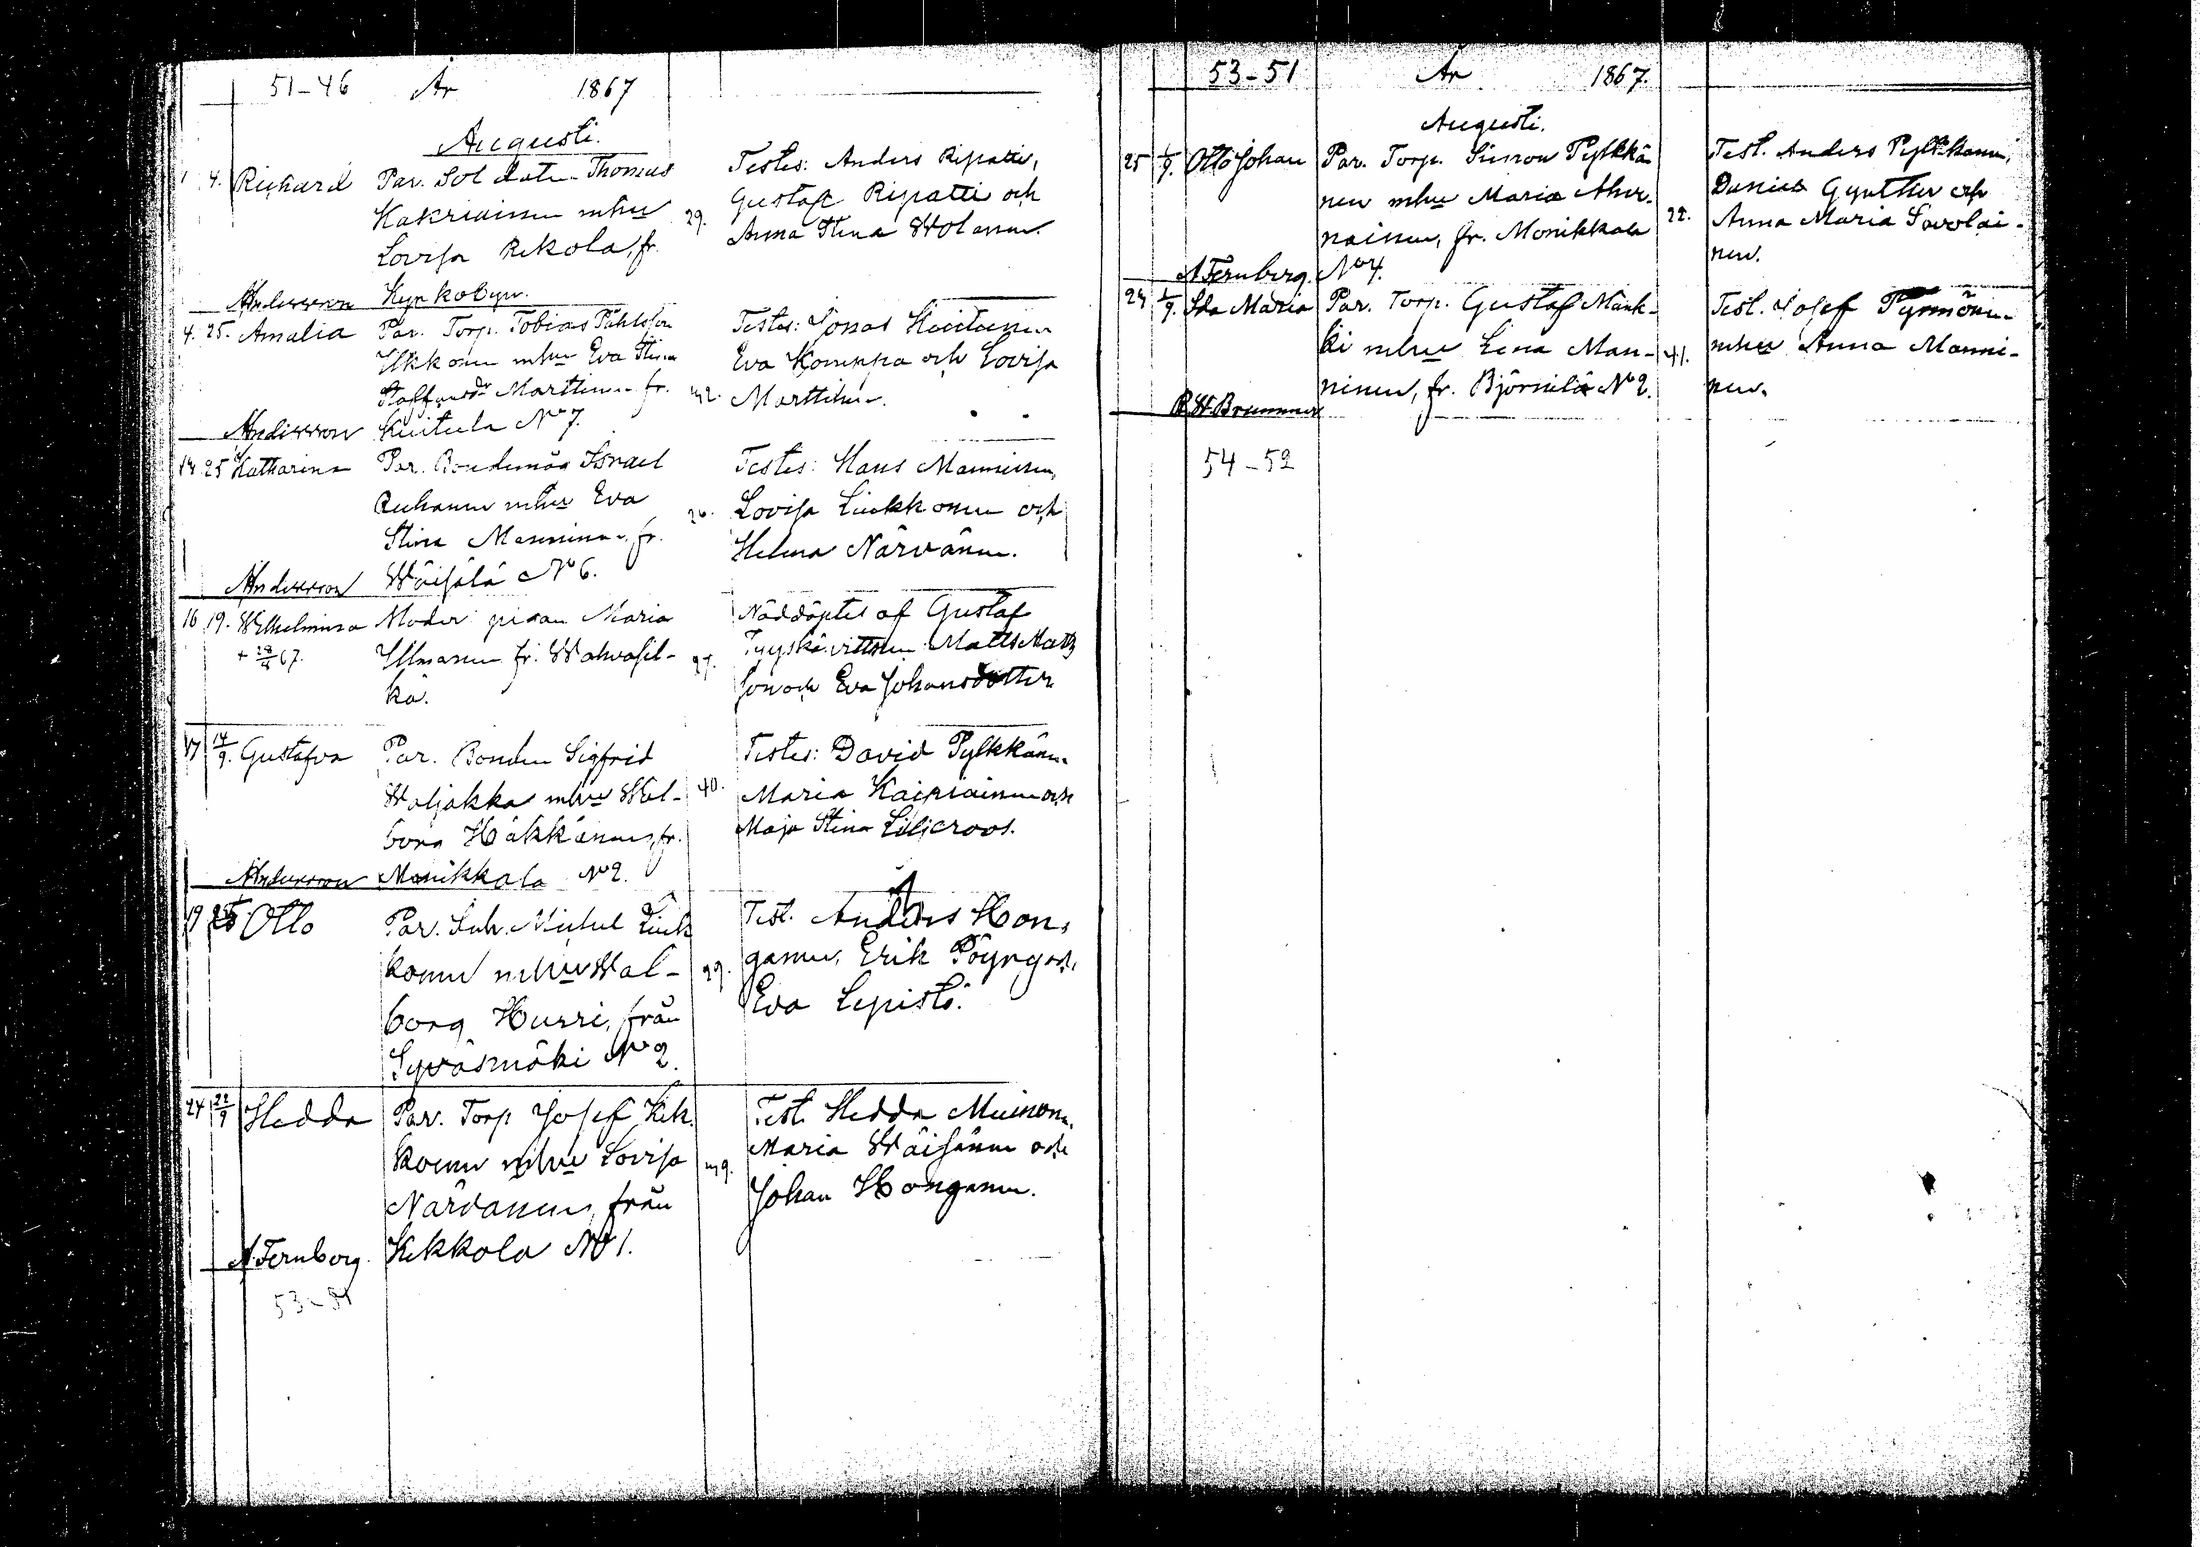 51-46 År 1867
Augusti.
1 4. Richard Par. Soldaten Thomas
Kakriainen mhu
Lovisa Rekola, fr.
Kyrkobyn.
29.
Testes: Anders Ripatti,
Gustaf Ripatti och
Anna Stina Wolanen.
Andersson
4. 25. Amalia Par. Torp. Tobias Påhlsson
Ukkonen mhu Eva Stina
Staffansdr Marttinen fr.
Kuitula No 7.
42.
Testes: Jonas Kuitunen
Eva Komppa och Lovisa
Marttinen.
Andersson
14 25 Katharina Par. Bondemåg Israel
mhu Eva
Stina Manninen, fr.
Wäisälä No 6.
26.
Testes: Hans Manninen,
Lovisa Liukkonen och
Helena Närvänen.
Andersson
16 19. Wilhelmina Moder: pigan Maria
+ 67. Ylimanen fr. Wahvasel-
kä.
Nöddöptes af Gustaf
Matts Matts
son och Eva Johansdotter
17 14/9. Gustafva Par. Bonden Sigfrid
Waljakka mhu Wal-
borg Häkkänen, fr.
Monikkala No 2.
40.
Testes: David Pylkkänen
Maria Kaipiainen och
Maja Stina Liljeroos.
Andersson
19 25 Otto Par. Inh. Michel Liuk
konen mhu Wal-
borg Hurri, från
Syväsmäki No 2.
29.
Test. Anders Hon-
ganen, Erik Pöyry och
Eva Lepistö.
24 22/9 Hedda Par. Torp Josef Kek
konen mhu Lovisa
Närvänen, från
Kekkola No 1.
Test. Hedda Muinonen,
Maria Wäisänen och
Johan Honganen.
A. Fernberg.
53-51
53-51 År 1867.
Augusti.
25 1/9. Otto Johan Par. Torp. Simon Pylkkä
nen mhu Maria Ahva-
nainen, fr. Monikkala
No 4.
22.
Test. Anders Pylkkänen,
Daniel Gynther och
Anna Maria Savolai-
nen.
A Fernberg.
24 1/9. Ida Maria Par. Torp. Gustaf Mänk-
ki mhu Lena Man-
ninen, fr. Björnilä No 2.
41.
Test. Josef Pynnönen
mhu Anna Manni-
nen.
Brummer
54-52